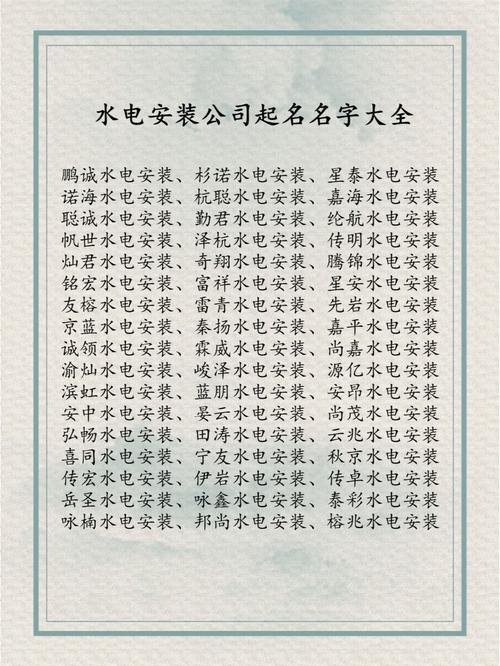 水电安装公司起名名字大全
鹏诚水电安装、杉诺水电安装、星泰水电安装
诺海水电安装、杭聪水电安装、嘉海水电安装
聪诚水电安装、勤君水电安装、纶航水电安装
帆世水电安装、泽杭水电安装、传明水电安装
灿君水电安装、奇翔水电安装、腾锦水电安装
铭宏水电安装、富祥水电安装、星安水电安装
友榕水电安装、雷青水电安装、先岩水电安装
京蓝水电安装、秦扬水电安装、嘉平水电安装
诚领水电安装、霖威水电安装、尚嘉水电安装
渝灿水电安装、峻泽水电安装、源亿水电安装
滨虹水电安装、蓝朋水电安装、安昂水电安装
安中水电安装、晏云水电安装、尚茂水电安装
弘畅水电安装、田涛水电安装、云兆水电安装
喜同水电安装、宁友水电安装、秋京水电安装
传宏水电安装、伊岩水电安装、传卓水电安装
岳圣水电安装、咏鑫水电安装、泰彩水电安装
咏楠水电安装、邦尚水电安装、榕兆水电安装